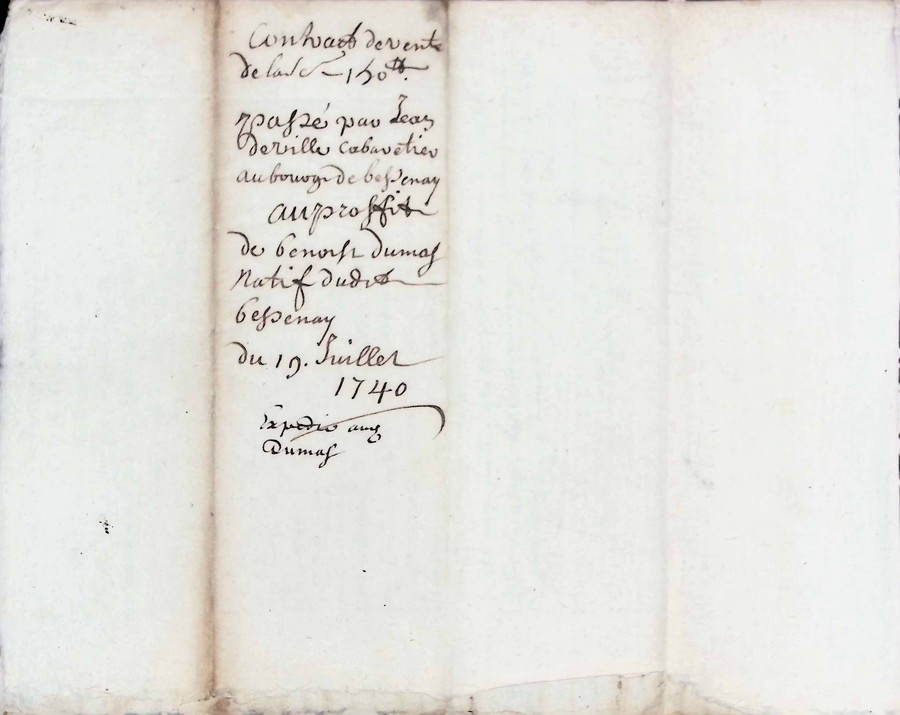 Contract de vente
de la s^e 150 ^tt.
passé par Jean
deville cabaretier
au bourg de bessenay
au proffit
de benoist dumas
Natif dudit
bessenay
du 19. Juillet
1740
Expedié aud
Dumas